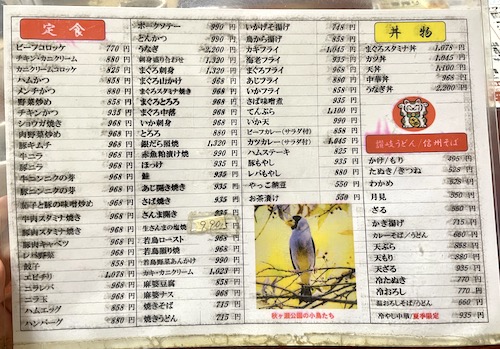 定食
ビーフコロッケ 770円
チキン・カニクリーム 858円
カニクリームコロッケ 825円
ハムかつ 858円
メンチかつ 880円
野菜炒め 858円
チキンかつ 935円
ショウガ焼き 968円
肉野菜炒め 968円
豚キムチ 968円
牛ニラ
豚ニラ 968円
牛ニンニクの芽
豚ニンニクの芽
茄子と豚の味噌炒め
牛肉スタミナ焼き
豚肉スタミナ焼き
豚肉キャベツ
レバ野菜
餃子 858円
エビチリ 1,078円
ニラレバ 968円
ニラ玉 968円
ハムエッグ 858円
ハンバーグ 880円
ポークソテー 990円
とんかつ 990円
うなぎ 2,200円
刺身盛り合わせ 1,320円
まぐろ刺身 1,320円
まぐろ山かけ 968円
まぐろスタミナ焼き 968円
まぐろとろろ 968円
まぐろ中落 968円
いか刺身 968円
とろろ 880円
銀だら照焼 1,320円
赤魚粕漬け焼 990円
ほっけ 935円
鮭 935円
あじ開き焼き 935円
さば焼き 935円
さんま開き 935円
生さんまの塩焼
若鳥ロースト 968円
若鳥照り焼 968円
若鳥野菜あんかけ 990円
カキ・カニクリーム 1,023円
麻婆豆腐 858円
麻婆ナス 968円
焼きそば 715円
焼きうどん 715円
いかげそ揚げ 748円
鳥から揚げ 858円
カキフライ 1,045円
海老フライ 935円
まぐろフライ 968円
あじフライ 968円
いかフライ 858円
さば味噌煮 935円
てんぷら 1,100円
いか天 990円
ビーフカレー(サラダ付) 858円
カツカレー(サラダ付) 1,045円
ハムステーキ 825円
豚もやし 935円
レバもやし 880円
やっこ納豆
お茶漬け
秋ヶ瀬公園の小鳥たち
丼物
まぐろスタミナ丼 1,078円
カツ丼 1,045円
天丼 1,100円
中華丼 968円
うなぎ丼 2,200円
讃岐うどん/信州そば
かけ/もり 495円
たぬき/きつね
わかめ
月見 550円
ざる
かき揚げ 715円
カレーそば/うどん
天ぷら
天もり 880円
天ざる 935円
冷たぬき 715円
冷おろし 715円
鳥おろしそば/うどん 660円
冷やし中華/夏季限定 935円